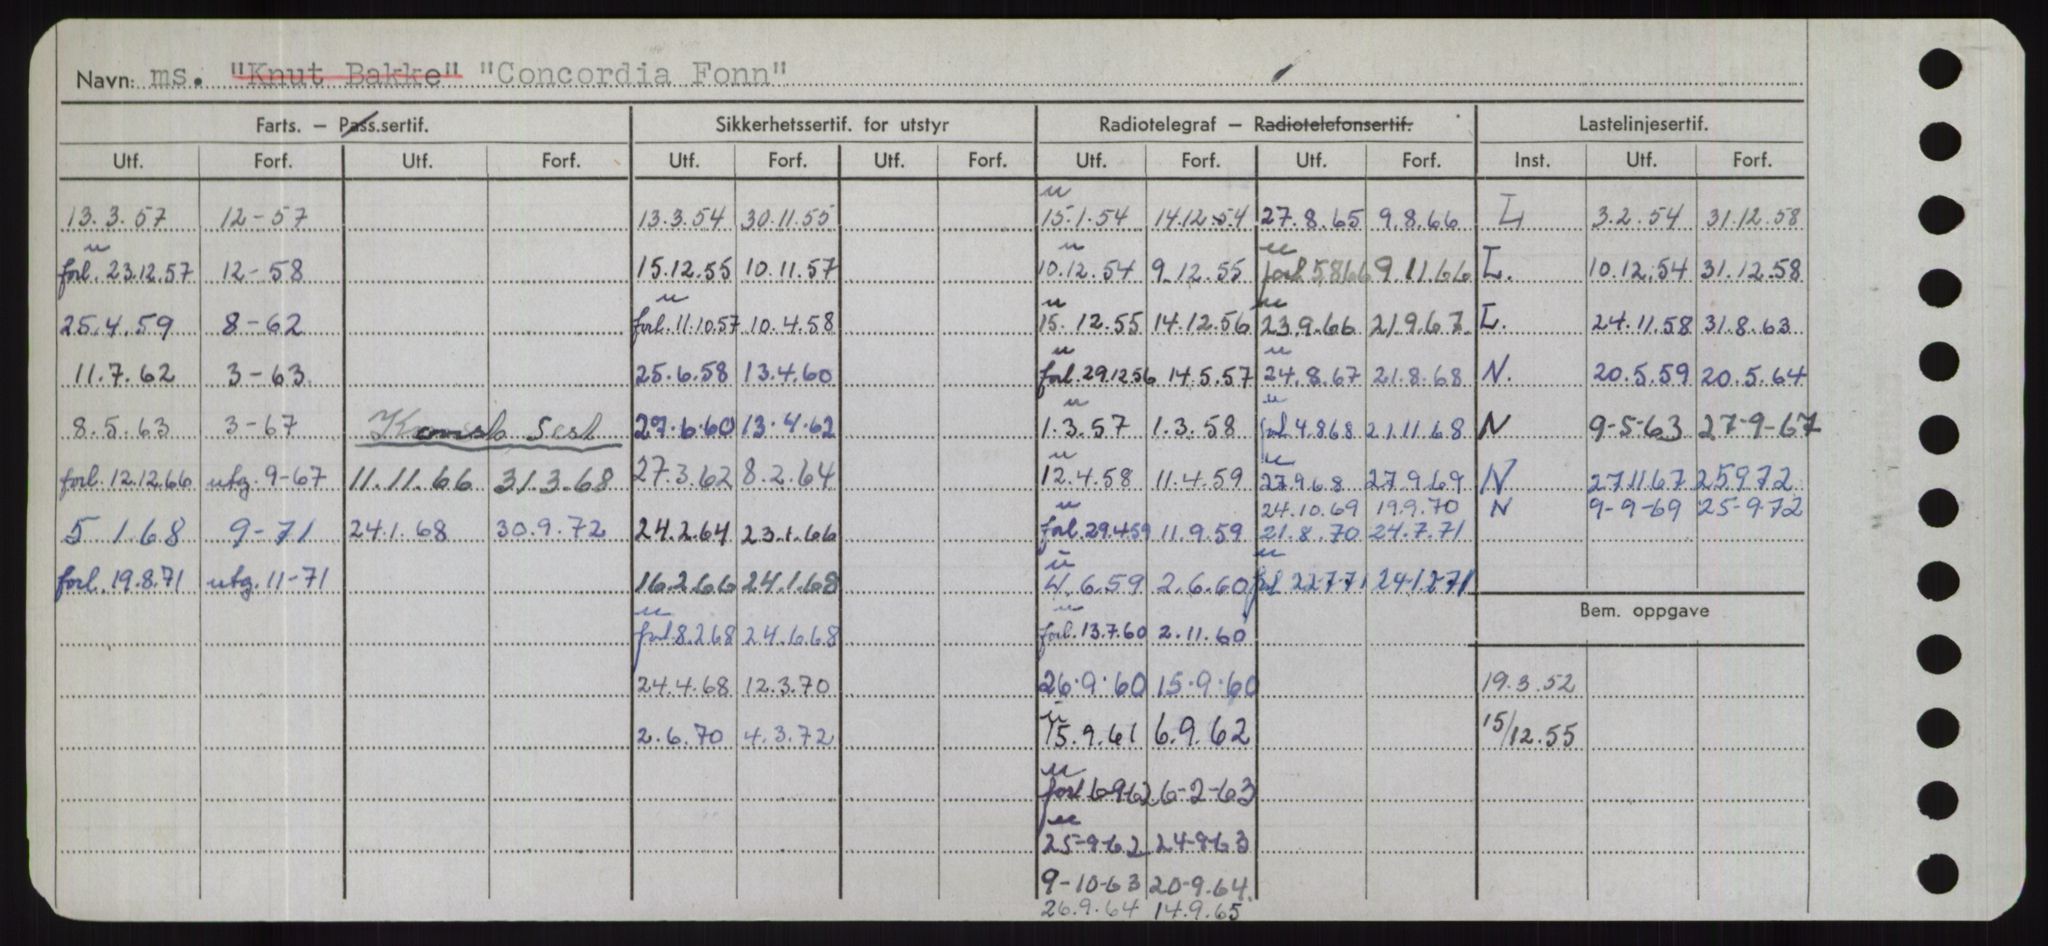 Navn: ms. "Knut Bakke" "Concordia Fonn"
Farts. – Pass.sertif. Sikkerhetssertif. for utstyr Radiotelegraf – Radiotelefonsertif. Lastelinjesertif.
Utf. Forf. Utf. Forf. Utf. Forf. Utf. Forf. Utf. Forf. Utf. Forf. Inst. Utf. Forf.
13.3.57 12-57 13.3.54 30.11.55 15.1.54 14.12.54 27.8.65 9.8.66 L 3.2.54 31.12.58
forl. 23.12.57 12-58 15.12.55 10.11.57 10.12.54 9.12.55 forl 5.8.66 9.11.66 L. 10.12.54 31.12.58
25.4.59 8-62 forl. 11.10.57 10.4.58 15.12.55 14.12.56 23.9.66 21.9.67 L. 24.11.58 31.8.63
11.7.62 3-63 25.6.58 13.4.60 forl. 29.12.56 14.5.57 24.8.67 21.8.68 N. 20.5.59 20.5.64
8.5.63 3-67 27.6.60 13.4.62 1.3.57 1.3.58 forl 4.8.68 21.11.68 N 9-5-63 27-9-67
forl. 12.12.66 utg. 9-67 11.11.66 31.3.68 27.3.62 8.2.64 12.4.58 11.4.59 27.9.68 27.9.69 N 27.11.67 25.9.72
24.10.69 19.9.70 N 9-9-69 25-9-72
5.1.68 9-71 24.1.68 30.9.72 24.2.64 23.1.66 forl. 29.4.59 11.9.59 21.8.70 24.7.71
forl. 19.8.71 utg. 11-71 16.2.66 24.1.68 4.6.59 2.6.60 forl 22-7-71 24-12-71
Bem. oppgave
forl. 8.2.68 24.6.68 forl. 13.7.60 2.11.60
24.4.68 12.3.70 26.9.60 15.9.60 19.3.52
2.6.70 4.3.72 15.9.61 6.9.62 15/12.55
forl 6-9-62 6-2-63
25-9-62 24-9-63
9-10-63 20-9.64
26.9.64 14.9.65